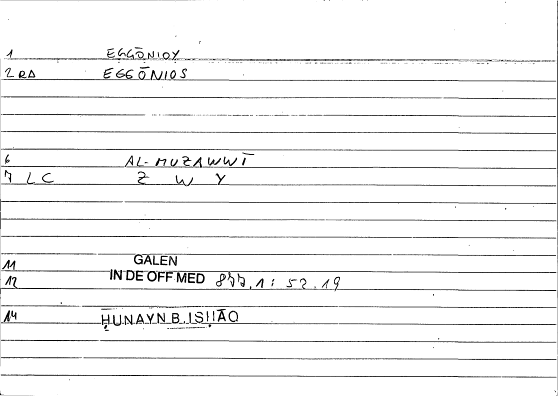 1 EGGŌNIOY
2 RD EGGŌNIOS
6 AL-MUZAWWĪ
7 LC Z W Y
11 GALEN
12 IN DE OFF MED 877,1: 52.19
14 ḤUNAYN B. ISḤĀQ